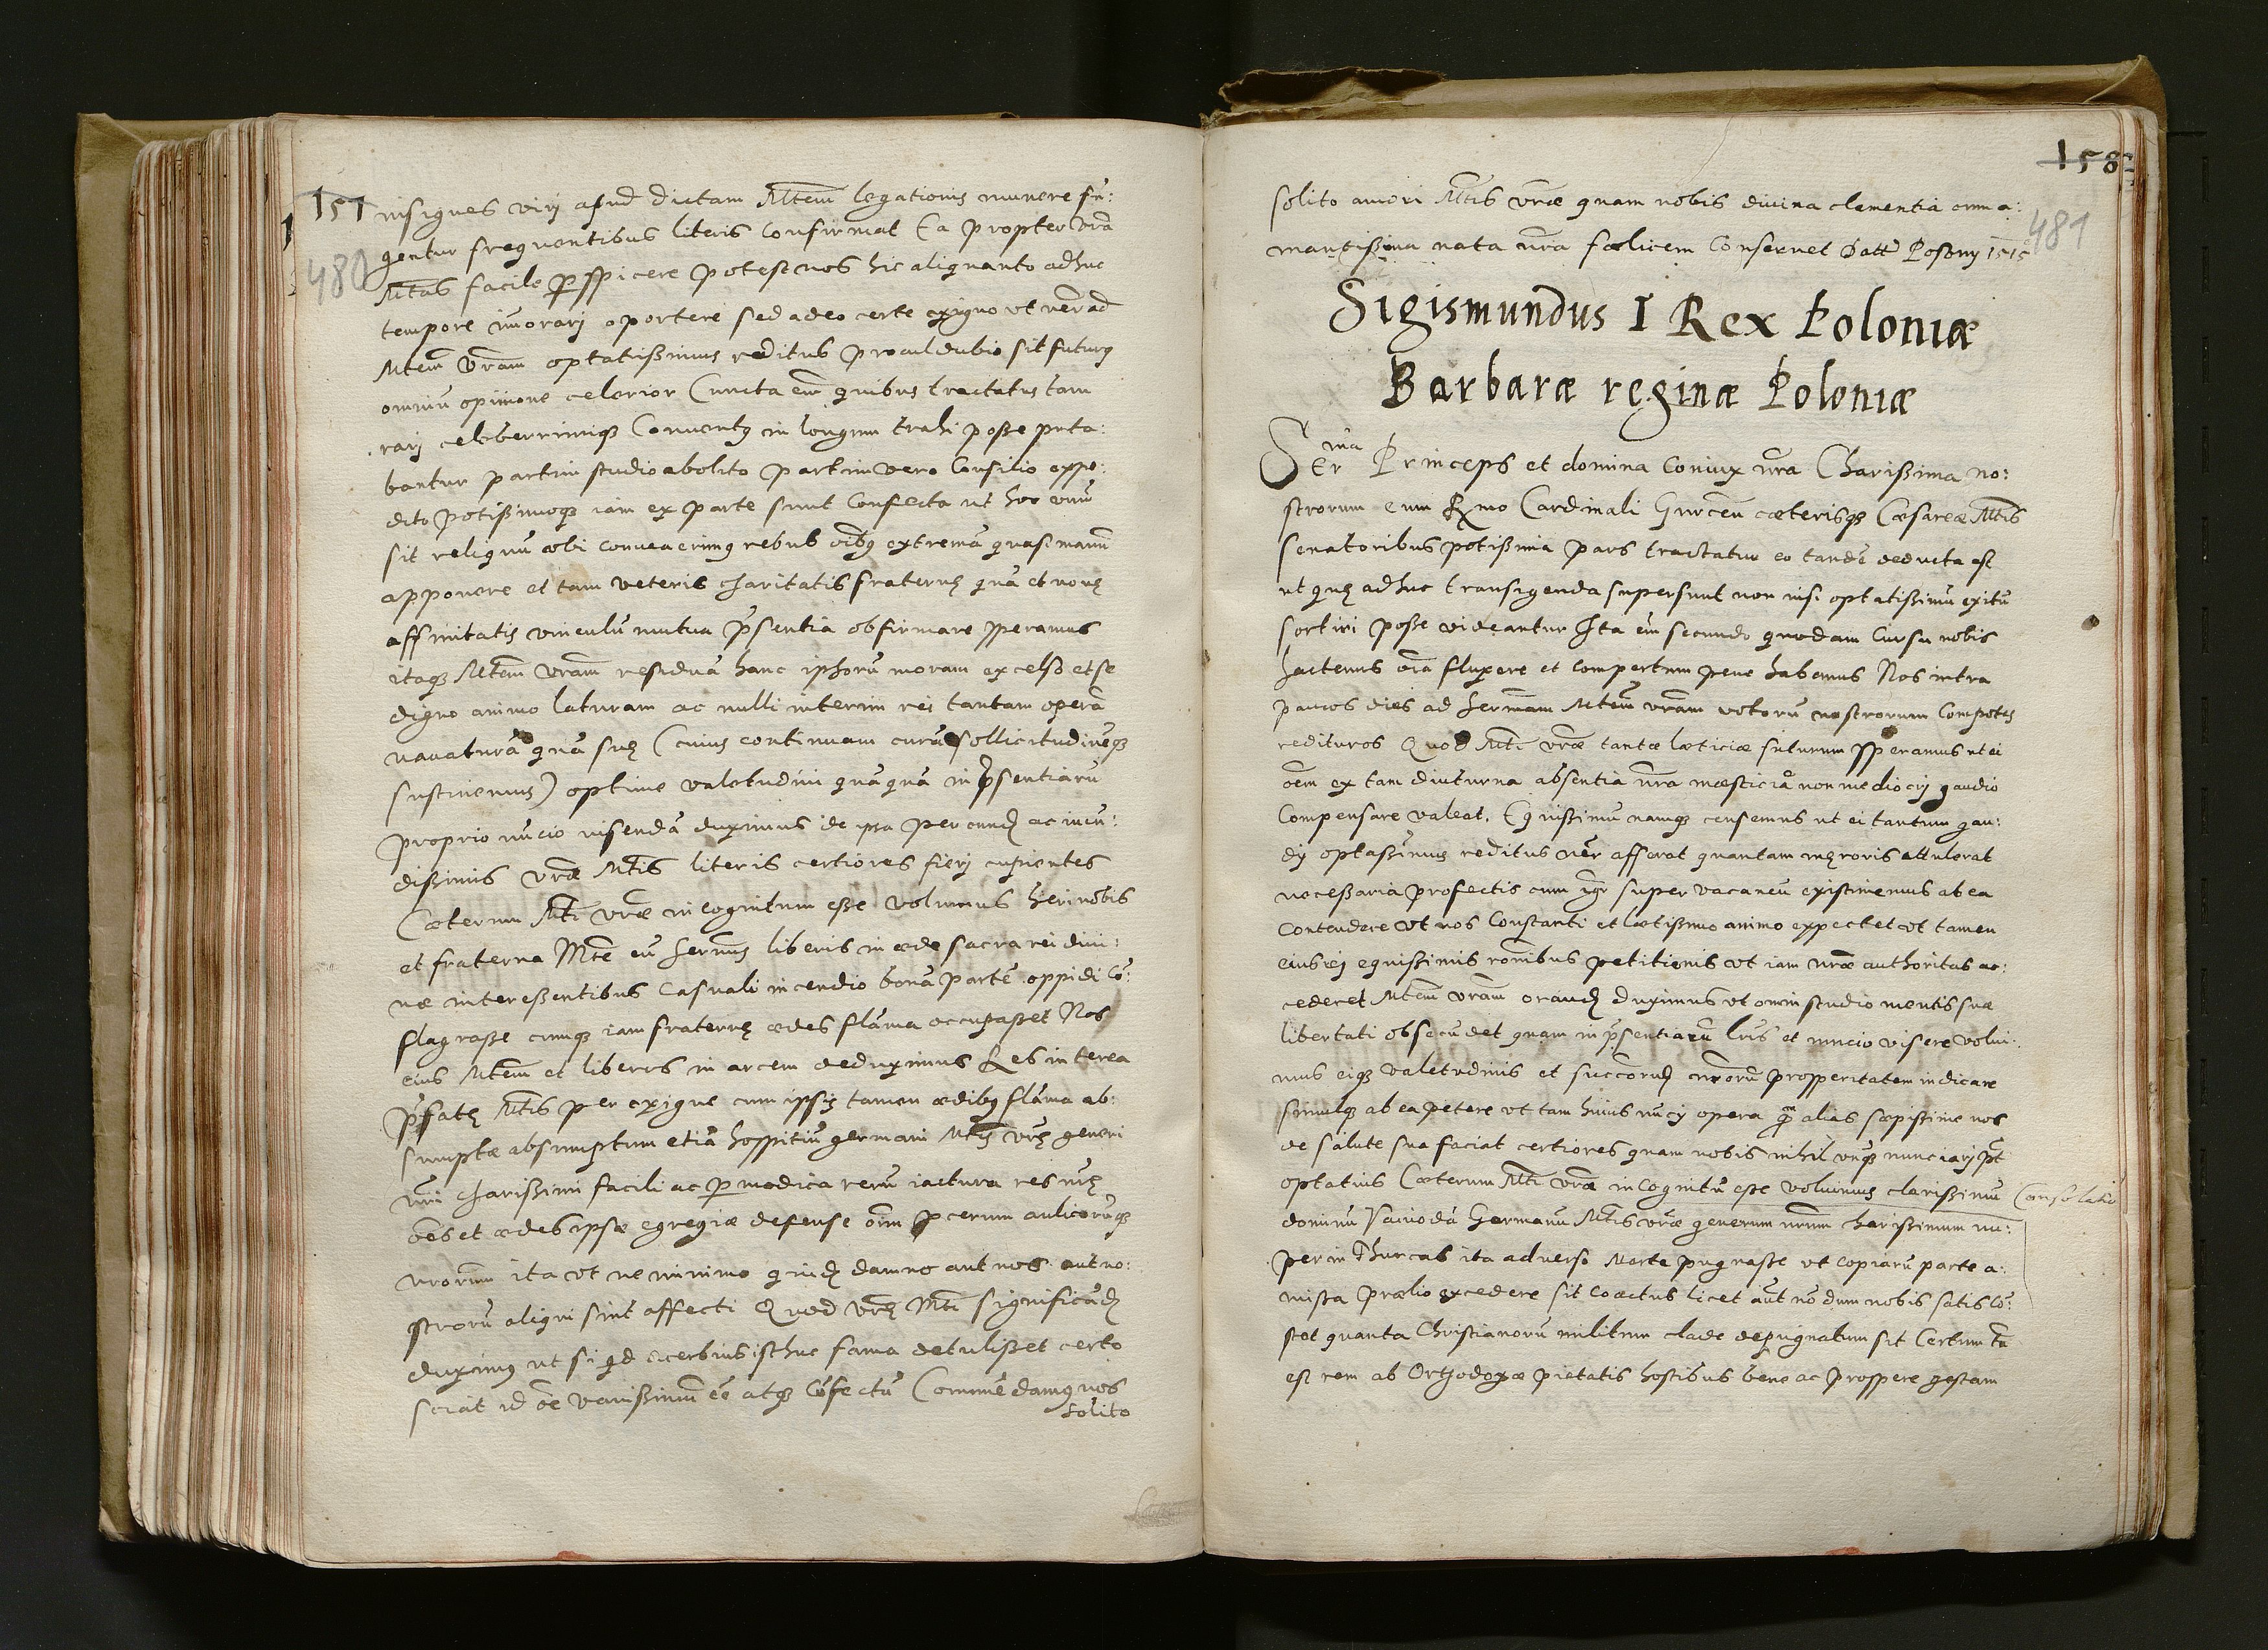 157
480
insignes viri apud dictam Mtem legationis munere fun:
gentur frequentibus literis confirmat Ea propter vra
Mtas facile perspicere potest nos hic aliquanto adhuc
tempore imorari oportere sed adeo certe exiguo ut ner ad
Mtem vram optatissimus reditus proculdubio sit futurus
omniu opinione celerior Cuncta em quibus tractatus tam
rari celeberrimiq Conventus in longum trahi posse puta:
bantur partim studio abolito partim vero Consilio expe:
dito potissimaq iam ex parte sunt Confecta ut hoc unu
sit reliquu ubi convenerimus rebus oibus extrema quasi manu
apponere et tam veteris charitatis fraternę qua et novę
affinitatis vinculu mutua psentia obfirmare speramus
itaq Mtem vram residua hanc ipsoru moram excelso et se
digno animo laturam ac nulli interim rei tantam opera
navatura qua suę (cuius continuam cura sollicitudineq
sustinemus) optime valetudini qua qua in psentiaru
proprio nucio visenda duximus de ipsa per eund ac iucu:
dissimis vrae Mtis literis certiores fieri cupientes
Caeterum Mti vrae incognitum esse volumus heri nobis
et fraterna Mte cu sermis liberis in aede sacra rei divi:
nae interessentibus casuali incendio bona parte oppidi co:
flagrasse cumq iam fraternę aedes flama occupasset Nos
eius Mtem et liberos in arcem deduximus Res interea
pfatę Mtis per exigue cum ipsis tamen aedibus flama ab:
sumptae absumptum etia hospitiu germani Mtis vrę generi
nri charissimi facili ac permodica reru iactura res nrę
oes et aedes ipsae egregiae defense oim procerum aulicoruq
nrorum ita ut ne minimo quid damno aut nos aut no:
stroru aliqui sint affecti Quod vrę Mti significad
duximus ut si qd acerbius isthuc fama detulisset certo
sciat id oe vanissimum ee atq cofectu Commedamus nos
solito
158
481
solito amori Mtis vrae quam nobis divina clementia cum a:
mantissima nata nra foelicem Conservet Datt Posony 1515
Sigismundus I Rex Poloniae
Barbarae reginae Poloniae
SEr ma Princeps et domina Coniux nra Charissima no:
strorum cum Rmo Cardinali Gurcen caeterisq Caesareae Mtis
senatoribus potissima pars tractatur eo tande deducta est
ut quę adhuc transigenda supersunt non nisi optatissimu exitu
sortiri posse videantur Ita em secundo quodam Cursu nobis
hactenus oia fluxere et compertum pene habemus Nos intra
paucos dies ad sermam Mtem vram votoru nostrorum Compotes
redituros Quod Mti vrae tantae laeticiae futurum speramus ut ei
oem ex tam diuturna absentia nra maesticia non mediocri gaudio
Compensare valeat. Equissimu namq censemus ut ei tantum gau:
dij optassimus reditus ner afferat quantam męroris attulerat
necessaria profectio cum igr super vacaneu existimemus ab ea
contendere ut nos Constanti et laetissimo animo expectet ut tamen
eiusei equissimis ronibus petitionis ut iam nrae authoritas ac:
cederet Mtem vram orand duximus ut omni studio mentis suae
libertati obsecudet quam in psentiaru lris et nuncio visere volui:
mus eiq valetudinis et succorud nroru prosperitatem indicare
simulq ab ea petere ut tam huius nucij opera qm alias saepissime nos
de salute sua faciat certiores quam nobis nihil unq nunciari pt
optatius Caeterum Mti vrae incognitu esse volumus clarissimu
Consolatio
dominu Vaivoda Germanu Mtis vrae generum nrum charissimum nu:
per in Thurcas ita adverso Marte pugnasse ut copiaru parte a:
missa praelio excedere sit coactus licet aut no dum nobis satis co:
stet quanta Christianoru militum clade depugnatum sit Certum tn
est rem ab Orthodoxae pietatis hostibus bene ac prospere gestam